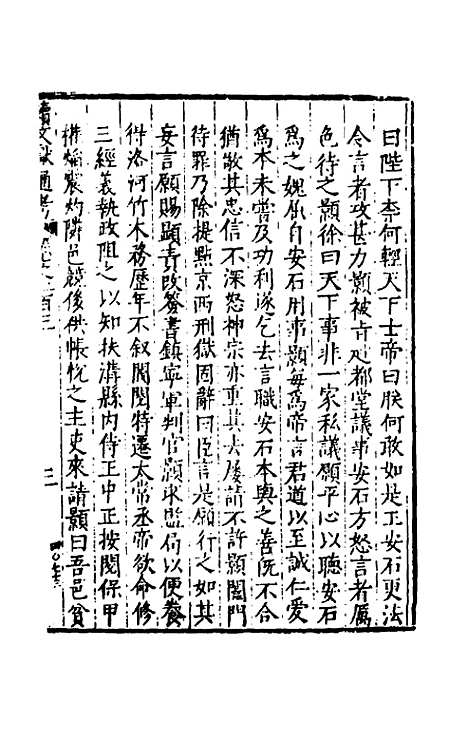 曰陛下柰何輕天下士帝曰朕何敢如是王安石更法
令言者攻甚力顥被旨赴都堂議事安石方怒言者厲
色待之顥徐曰天下事非一家私議願平心以聽安石
爲之媿屈自安石用事顥每爲帝言君道以至誠仁愛
爲本未嘗及功利遂乞去言職安石本與之善旣不合
猶敬其忠信不深怒神宗亦重其去屢請不許顥闔門
待罪乃除提點京西刑獄固辭曰臣言是願行之如其
妄言願賜顯責改簽書鎮寧軍判官顥求監局以便養
得洛河竹木務歷年不叙閥閱特遷太常丞帝欲命修
三經義執政阻之以知扶溝縣内侍王中正按閱保甲
權焰震灼隣邑競侈供帳恱之主吏來請顥曰吾邑貧
續文獻通考
三